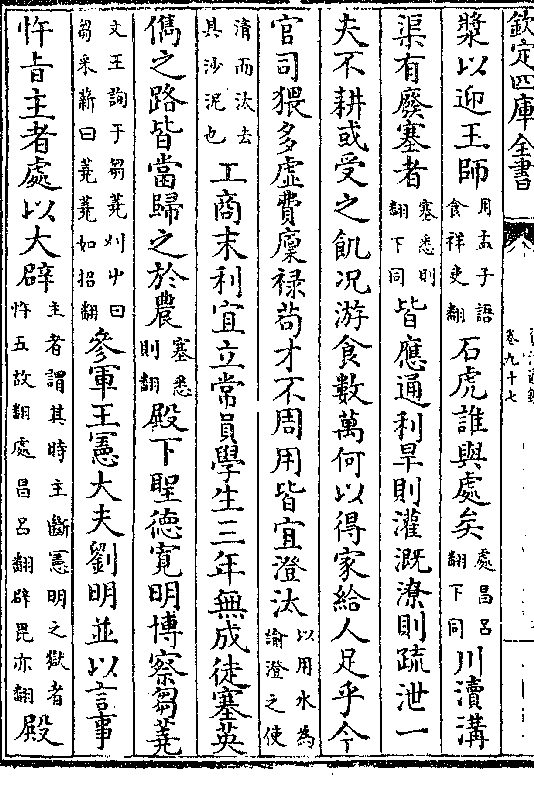 欽定四庫全書
卷九十七
漿以迎王師用孟子語食祥吏翻石虎誰與處矣處昌呂翻下同川瀆溝
渠有廢塞者塞悉則翻下同皆應通利旱則灌溉潦則疏泄一
夫不耕或受之飢况游食數萬何以得家給人足乎今
官司猥多虛費廩祿苟才不周用皆宜澄汰以用水為諭澄之使
清而汰去其沙泥也工商末利宜立常員學生三年無成徒塞英
儁之路皆當歸之於農塞悉則翻殿下聖德寛明博察芻蕘
文王詢于芻蕘刈屮曰芻采薪曰蕘蕘如招翻參軍王憲大夫劉明並以言事
忤旨主者處以大辟主者謂其時主斷憲明之獄者忤五故翻處昌呂翻辟毘亦翻殿